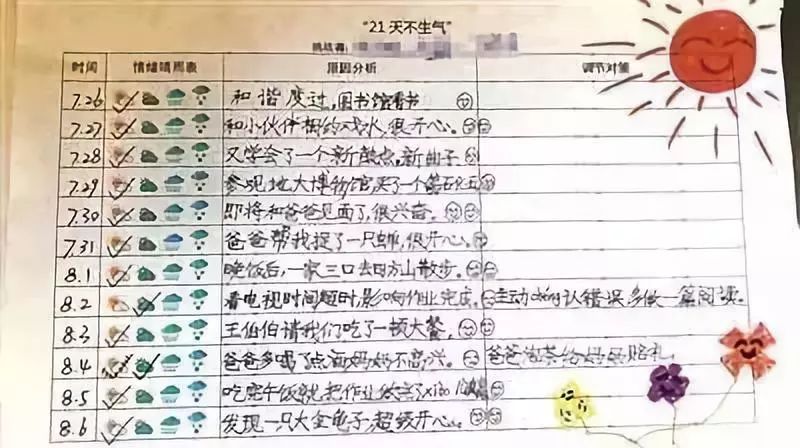 "21天不生气"
挑战者:
时间 情绪晴雨表 原因分析 调节对策
7.26 和谐度过,图书馆看书
7.27 和小伙伴相约戏水,很开心。
7.28 又学会了一个新舞点,新曲子
7.29 参观地大博物馆买了一个
7.30 即将和爸爸见面了,很兴奋。
7.31 爸爸帮我捉了一只蝉,很开心。
8.1 晚饭后,一家三口去日方山散步。
8.2 看电视时间超时,影响作业完成, 主动ching认错误,多做一篇阅读。
8.3 王伯伯请我们吃了一顿大餐,
8.4 爸爸多喝了点酒妈妈不高兴。 爸爸泡茶给妈妈赔礼
8.5 吃完午饭就把作业做完了
8.6 发现一只大金电子,超级开心。